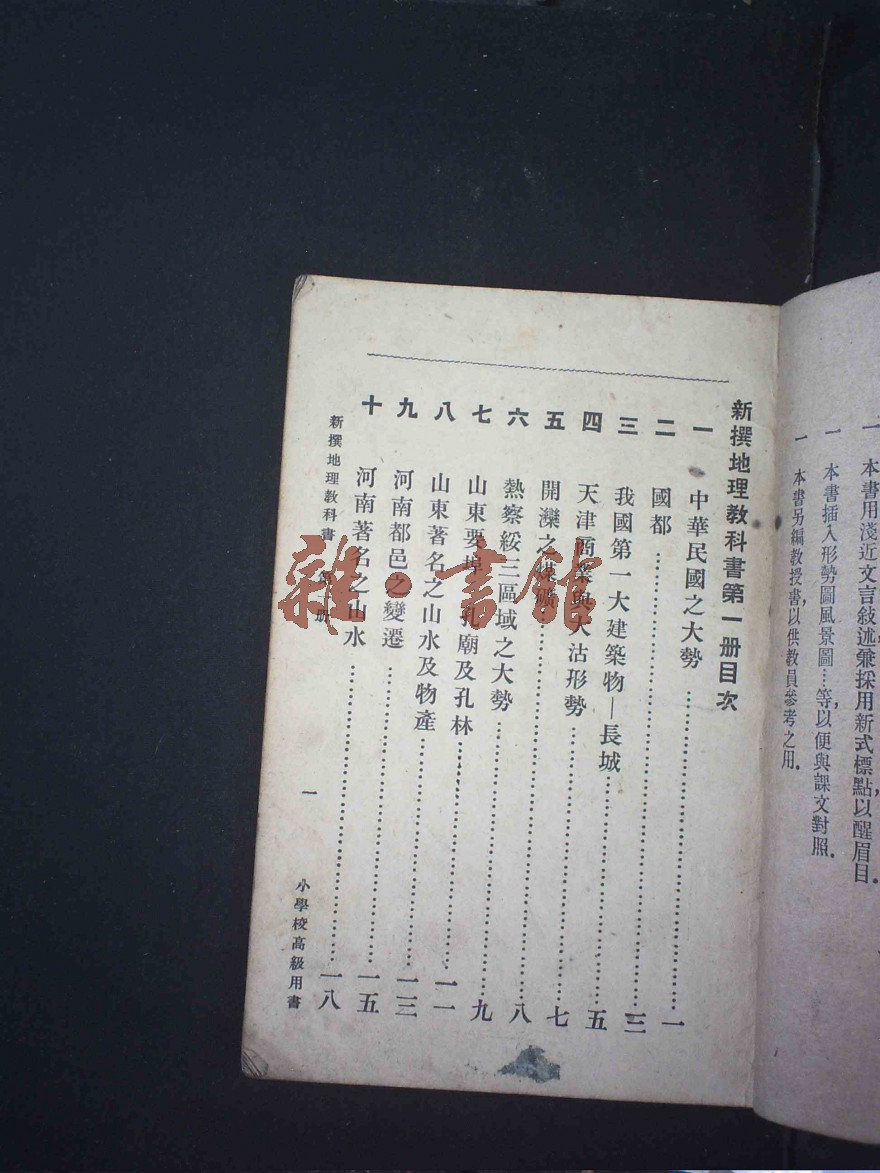 一 本書用淺近文言敍述兼採用新式標點,以醒眉目.
一 本書插入形勢圖風景圖…等,以便與課文對照.
一 本書另編教授書,以供教員參考之用.
新撰地理教科書第一册目次
一 中華民國之大勢……一
二 國都……三
三 我國第一大建築物—長城……五
四 天津商業與大沽形勢……七
五 開灤之煤礦……八
六 熱察綏三區域之大勢……九
七 山東要埠 孔廟及孔林……一一
八 山東著名之山水及物產……一三
九 河南都邑之變遷……一五
十 河南著名之山水……一八
新撰地理教科書 第 册 一 小學校高級用書
雜·書館